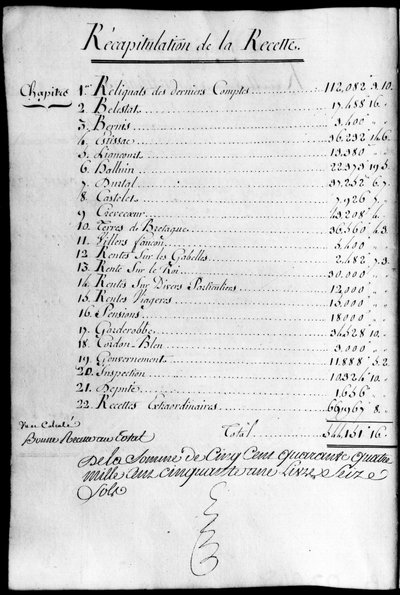 Récapitulation de la Recette.
Chapitres 1er Reliquats des derniers Comptes 112,082 3. 10.
2. Belestat 17,488 16.
3. Bernis 3,400
4. Estissac 36,232 14. 6.
5. Liancourt 13,380
6. Halluin 22,373 19. 5.
7. Durtal 37,252 6. 7.
8. Castelet 7,926 7.
9. Crevecœur 43,208 4.
10. Terres de Bretagne 36,560 4. 3.
11. Villers faucon 5,400
12. Rentes Sur les Gabelles 2,482 7. 3.
13. Rente Sur le Roi 30,000
14. Rentes Sur Divers Particuliers 12,000
15. Rentes Viageres 15,000
16. Pensions 18000
17. Garderobbe 34,528 10.
18. Cordon-Bleu 3,000
19. Gouvernement 11,888 5. 2.
20. Inspection 10,324 10.
21. Deputé 1,656
22. Recettes Extraordinaires 66,967 8.
Total 544,151 16
Bonne au Total
De la Somme de Cinq Cent quarante quatre
mille Cent cinquante une Livre Seize
Sols